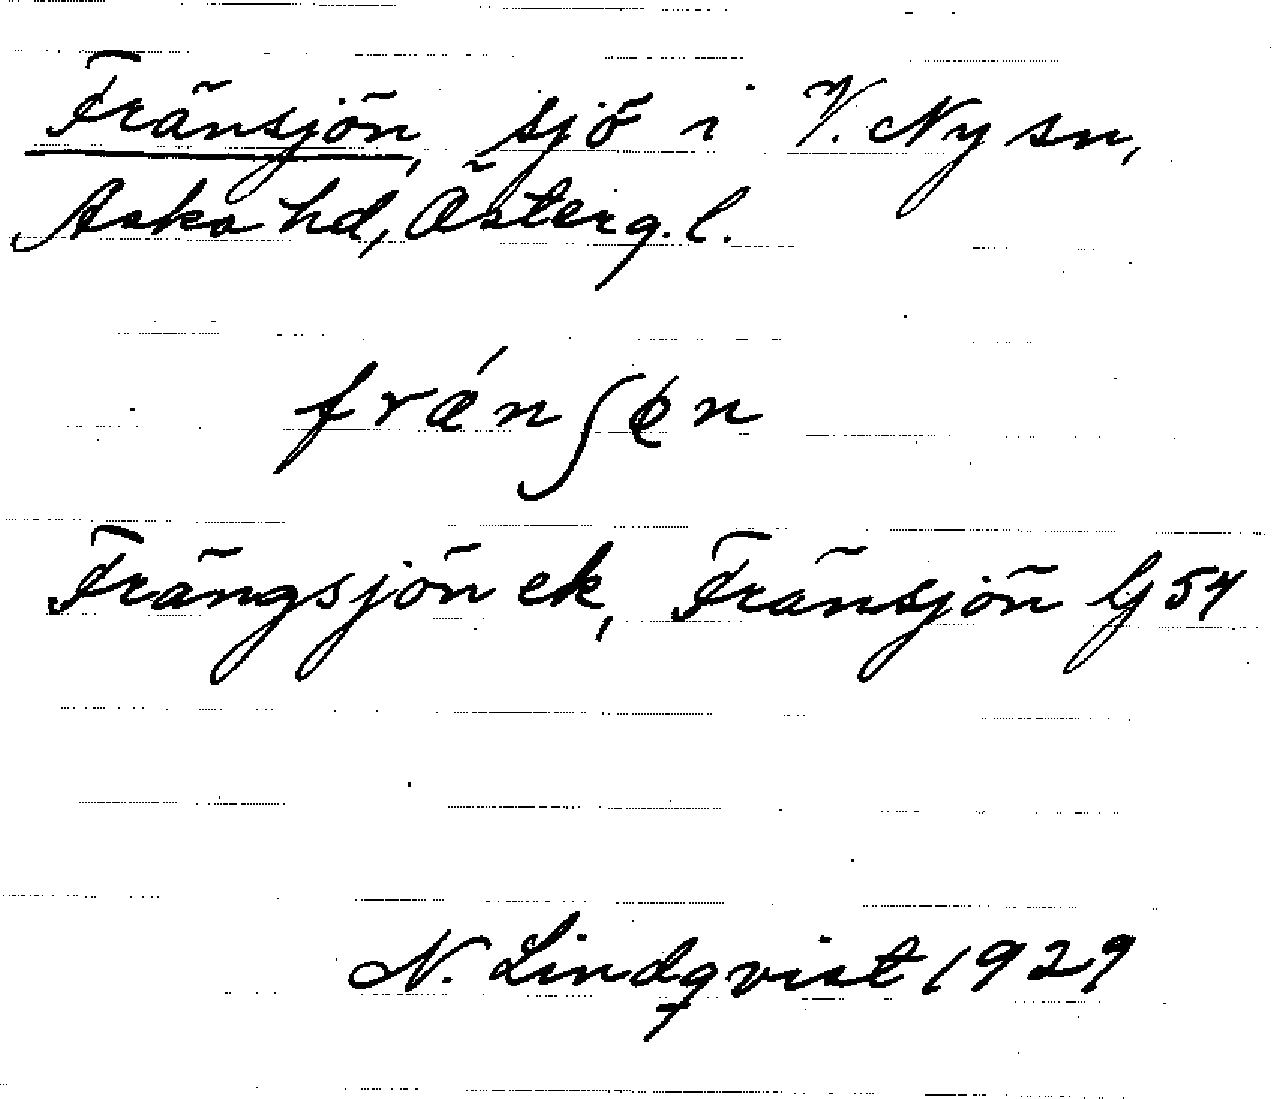 Fränsjön, sjö i V. Ny sn,
Aska hd, Österg. l.
frǽnʃøn
Frängsjön ek, Fränsjön G 54
N. Lindqvist 1929